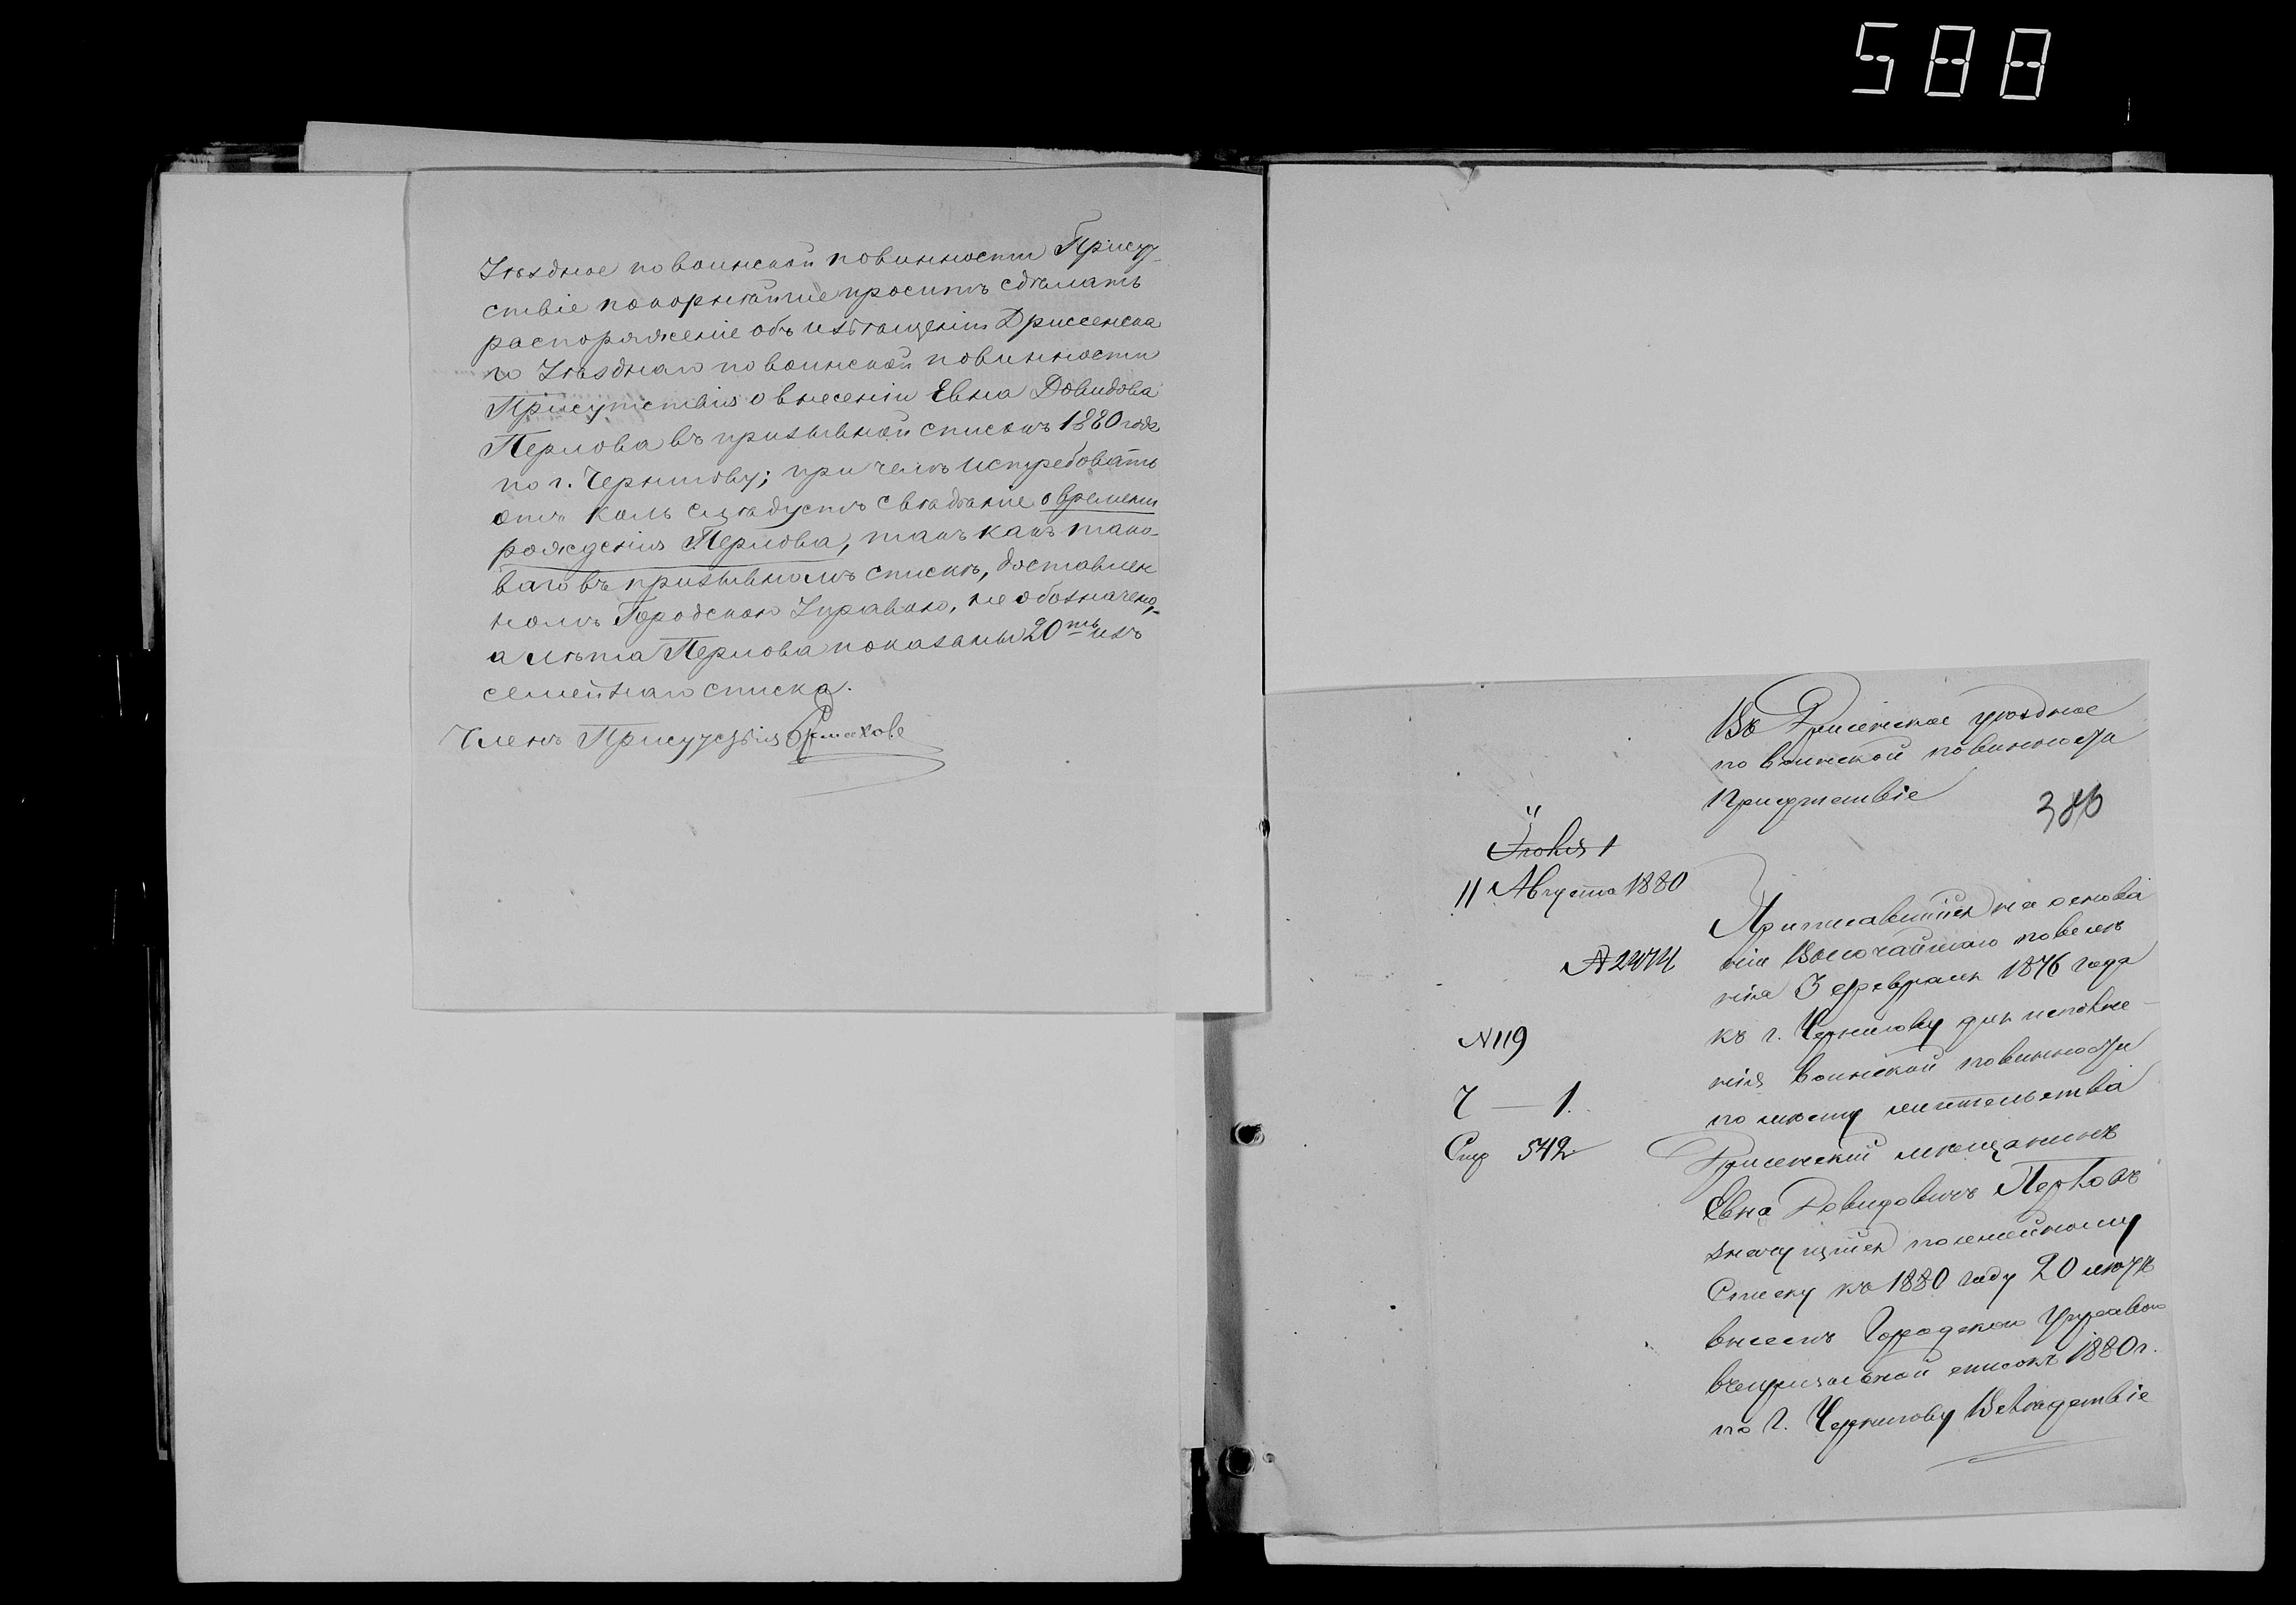 588
Уѣздное по воинской повинности Присут-
ствіе покорнѣйше проситъ сдѣлать
распоряженіе объ извѣщеніи Дриссенска
го Уѣзднаго по воинской повинности
Присутствія о внесеніи Евна Довидова
Перлова въ призывной списокъ 1880 года
по г. Чернигову; при чемъ истребовать
отъ коль слѣдуетъ свѣдѣніе о времени
рожденія Перлова, такъ какъ тако-
ваго въ призывномъ спискѣ, доставлен
номъ Городскою Управою, не обозначено,
а лѣта Перлова показаны 20ть изъ
семейнаго списка.
Членъ Присутствія
Въ Дрисенское уѣздное
по воинской повинности
присутствіе
386
Іюля 1
11 Августа 1880
№ 2474
№ 119
Ч — 1.
Стр 542
Приписавшійся на основа
ніи Высочайшаго повелѣ
нія 3 февраля 1876 года
къ г. Чернигову для исполне-
нія воинской повинности
по мѣсту жительства
Дрисенскій мѣщанинъ
Евна Довидовичъ Перловъ
значущійся по семейному
списку къ 1880 году 20 лѣтъ
внесенъ Городскою Управою
въ призывной списокъ 1880 г.
по г. Чернигову Вслѣдствіе